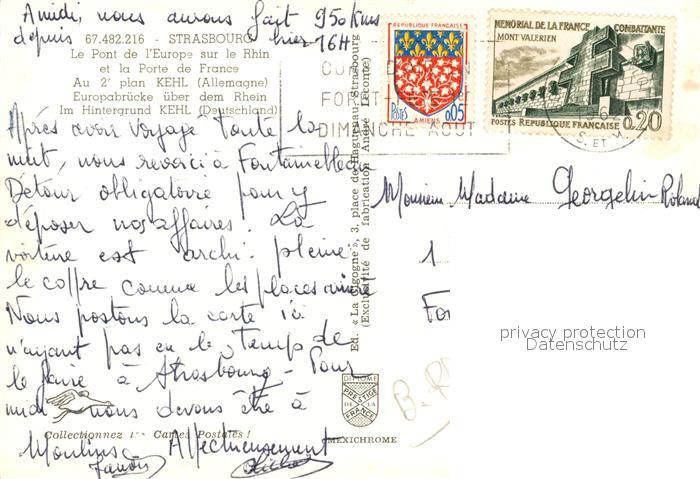 A midi, nous avons fait 950 Kms
depuis hier 16H
67.482.216 - STRASBOURG
Le Pont de l'Europe sur le Rhin
et la Porte de France
Au 2e plan KEHL (Allemagne)
Europabrücke über dem Rhein
Im Hintergrund KEHL (Deutschland)
Après avoir voyagé toute la
nuit, nous revoici à Fontainebleau
Détour obligatoire pour y
déposer nos affaires. La
voiture est archi-pleine
le coffre comme les places arrière
Nous postons la carte ici
n'ayant pas eu le temps de
le faire à Strasbourg - Pour
midi nous devons être à
Moulins. Affectueusement
Collectionnez les Cartes Postales !
Ed. « La Cigogne », 3, place de Haguenau, Strasbourg
(Exclusivité de fabrication André Leconte)
DIPLOME
PRESTIGE
DE LA
FRANCE
MEXICHROME
REPUBLIQUE FRANÇAISE
POSTES
0,05
AMIENS
MEMORIAL DE LA FRANCE COMBATTANTE
MONT VALERIEN
POSTES REPUBLIQUE FRANÇAISE 0,20
DIMANCHE AOUT
S. ET M.
Monsieur Madame Georgelin Roland
1
Fon
privacy protection
Datenschutz